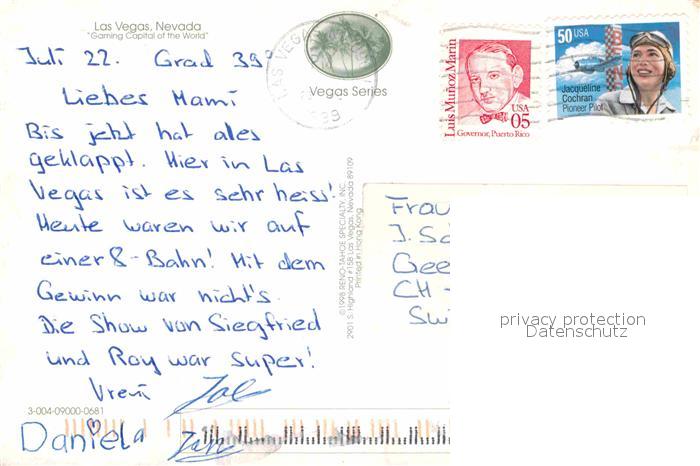 Las Vegas, Nevada
"Gaming Capital of the World"
Juli 22. Grad 39°
Liebes Mami
Bis jetzt hat ales
geklappt. Hier in Las
Vegas ist es sehr heiss!
Heute waren wir auf
einer 8-Bahn! Mit dem
Gewinn war nicht's.
Die Show von Siegfried
und Roy war super!
Vreni
Daniela Jan
3-004-09000-0681
Vegas Series
LAS VEGAS
Luis Muñoz Marín
USA
05
Governor, Puerto Rico
50 USA
Jacqueline
Cochran
Pioneer Pilot
©1998 RENO-TAHOE SPECIALTY, INC.
2901 S. Highland #15B Las Vegas, Nevada 89109
Printed in Hong Kong
Frau
J. Sc
Gee
CH -
Swi
privacy protection
Datenschutz